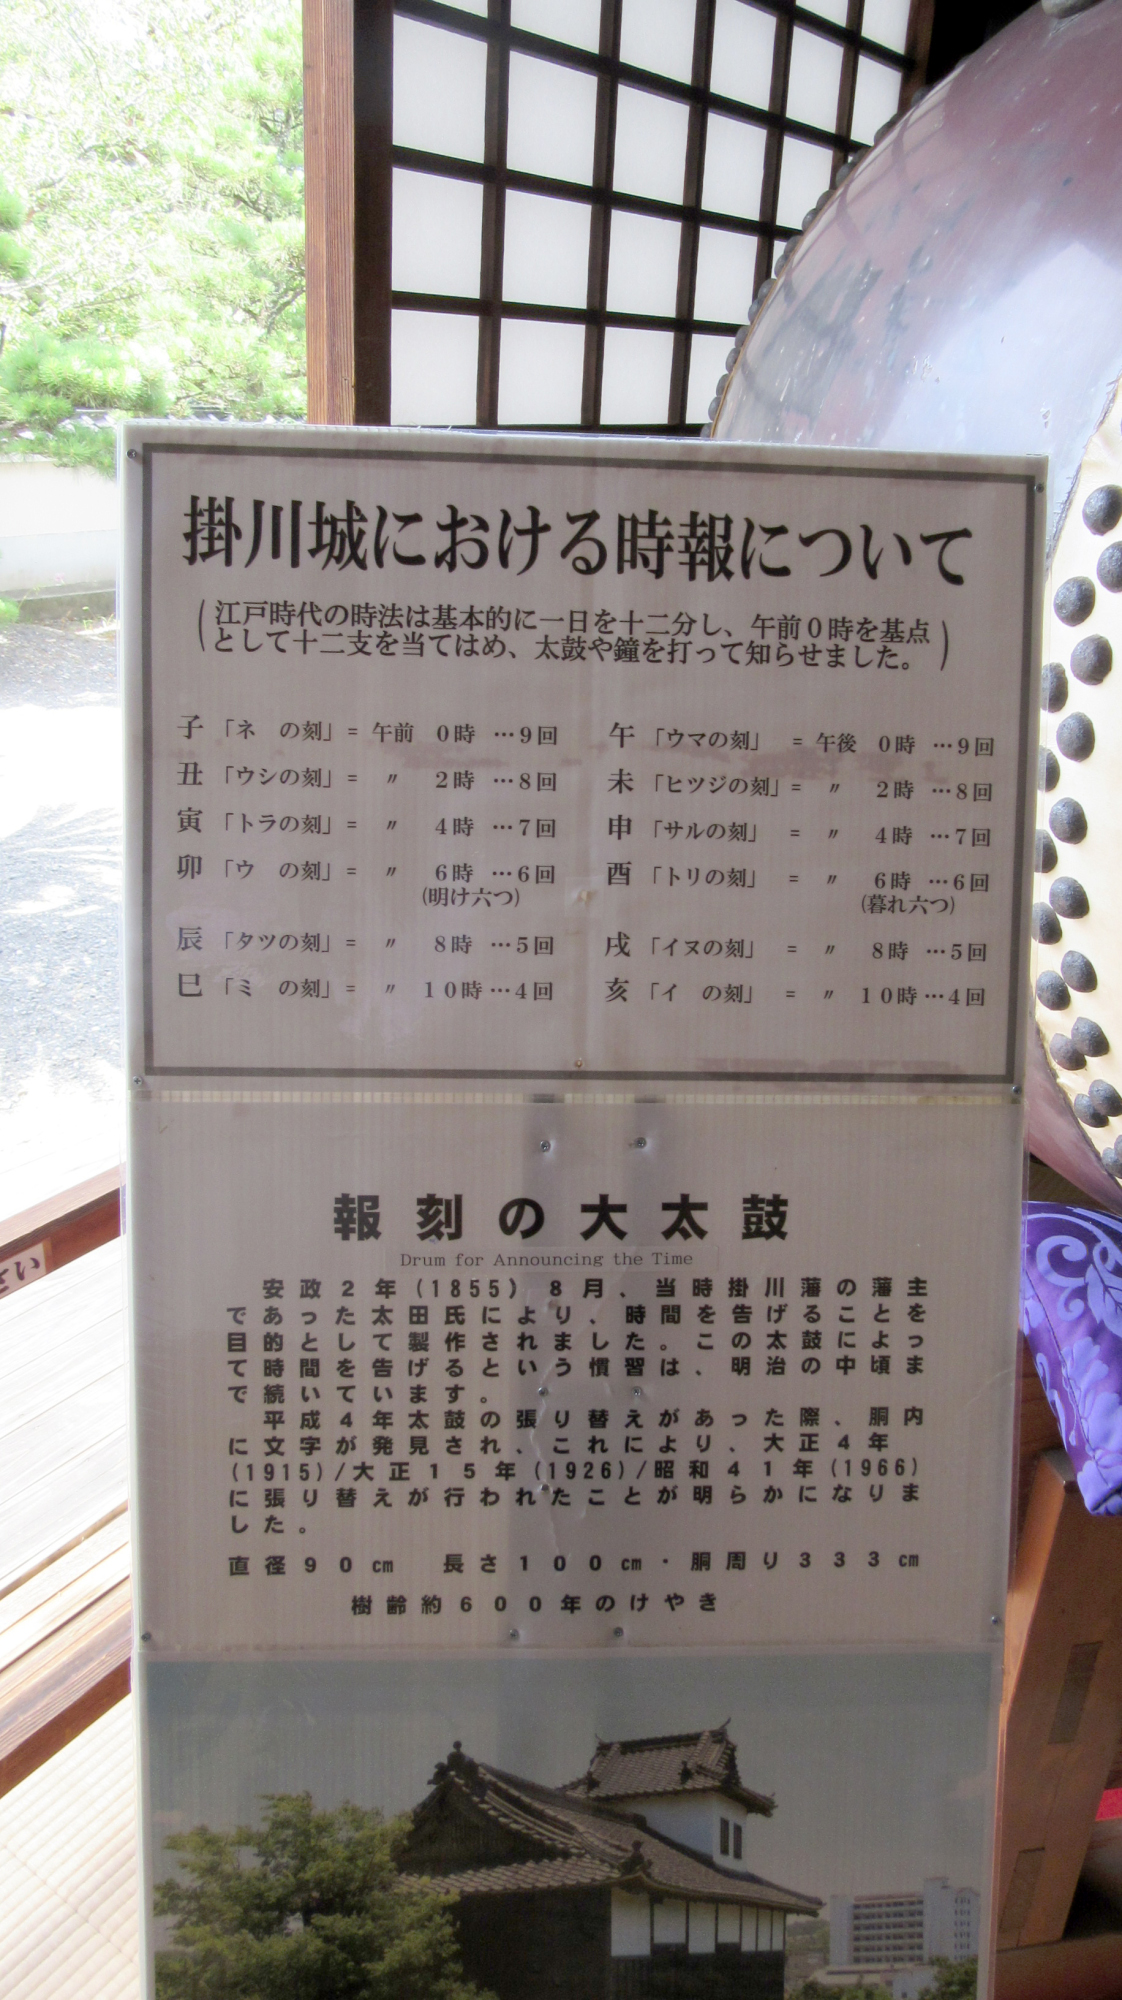 掛川城における時報について
(江戸時代の時法は基本的に一日を十二分し、午前0時を基点
として十二支を当てはめ、太鼓や鐘を打って知らせました。)
子「ネ　の刻」= 午前　0時 …9回
丑「ウシの刻」= 〃　2時 …8回
寅「トラの刻」= 〃　4時 …7回
卯「ウ　の刻」= 〃　6時 …6回
(明け六つ)
辰「タツの刻」= 〃　8時 …5回
巳「ミ　の刻」= 〃　10時 …4回
午「ウマの刻」= 午後　0時 …9回
未「ヒツジの刻」= 〃　2時 …8回
申「サルの刻」= 〃　4時 …7回
酉「トリの刻」= 〃　6時 …6回
(暮れ六つ)
戌「イヌの刻」= 〃　8時 …5回
亥「イ　の刻」= 〃　10時 …4回
報刻の大太鼓
Drum for Announcing the Time
安政2年(1855)8月、当時掛川藩の藩主
であった太田氏により、時間を告げることを
目的として製作されました。この太鼓によっ
て時間を告げるという慣習は、明治の中頃ま
で続いています。
平成4年太鼓の張り替えがあった際、胴内
に文字が発見され、これにより、大正4年
(1915)/大正15年(1926)/昭和41年(1966)
に張り替えが行われたことが明らかになりま
した。
直径90cm　長さ100cm・胴周り333cm
樹齢約600年のけやき
さい